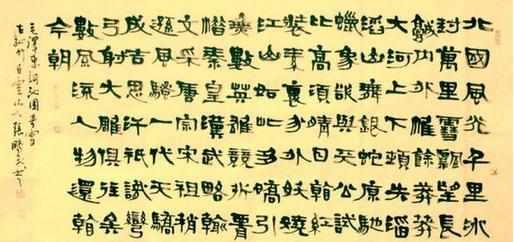 北國風光千里冰
封萬里雪飄望長
城內外惟餘莽莽
大河上下頓失滔
滔山舞銀蛇原馳
蠟象欲與天公試
比高須晴日看紅
裝素裹分外妖嬈
江山如此多嬌引
無數英雄競折腰
惜秦皇漢武略輸
文采唐宗宋祖稍
遜風騷一代天驕
成吉思汗祗識彎
弓射大雕俱往矣
數風流人物還看
今朝
毛澤東詞沁園春雪